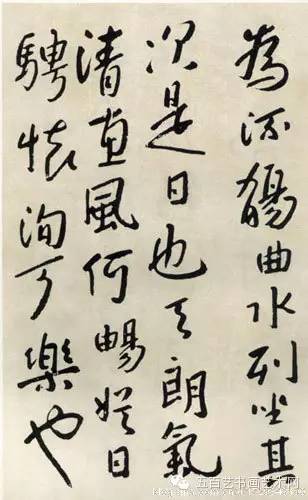 為流觴曲水列坐其
次是日也天朗氣
清惠風何暢娱日
騁懷洵可樂也
五百艺书画艺术网